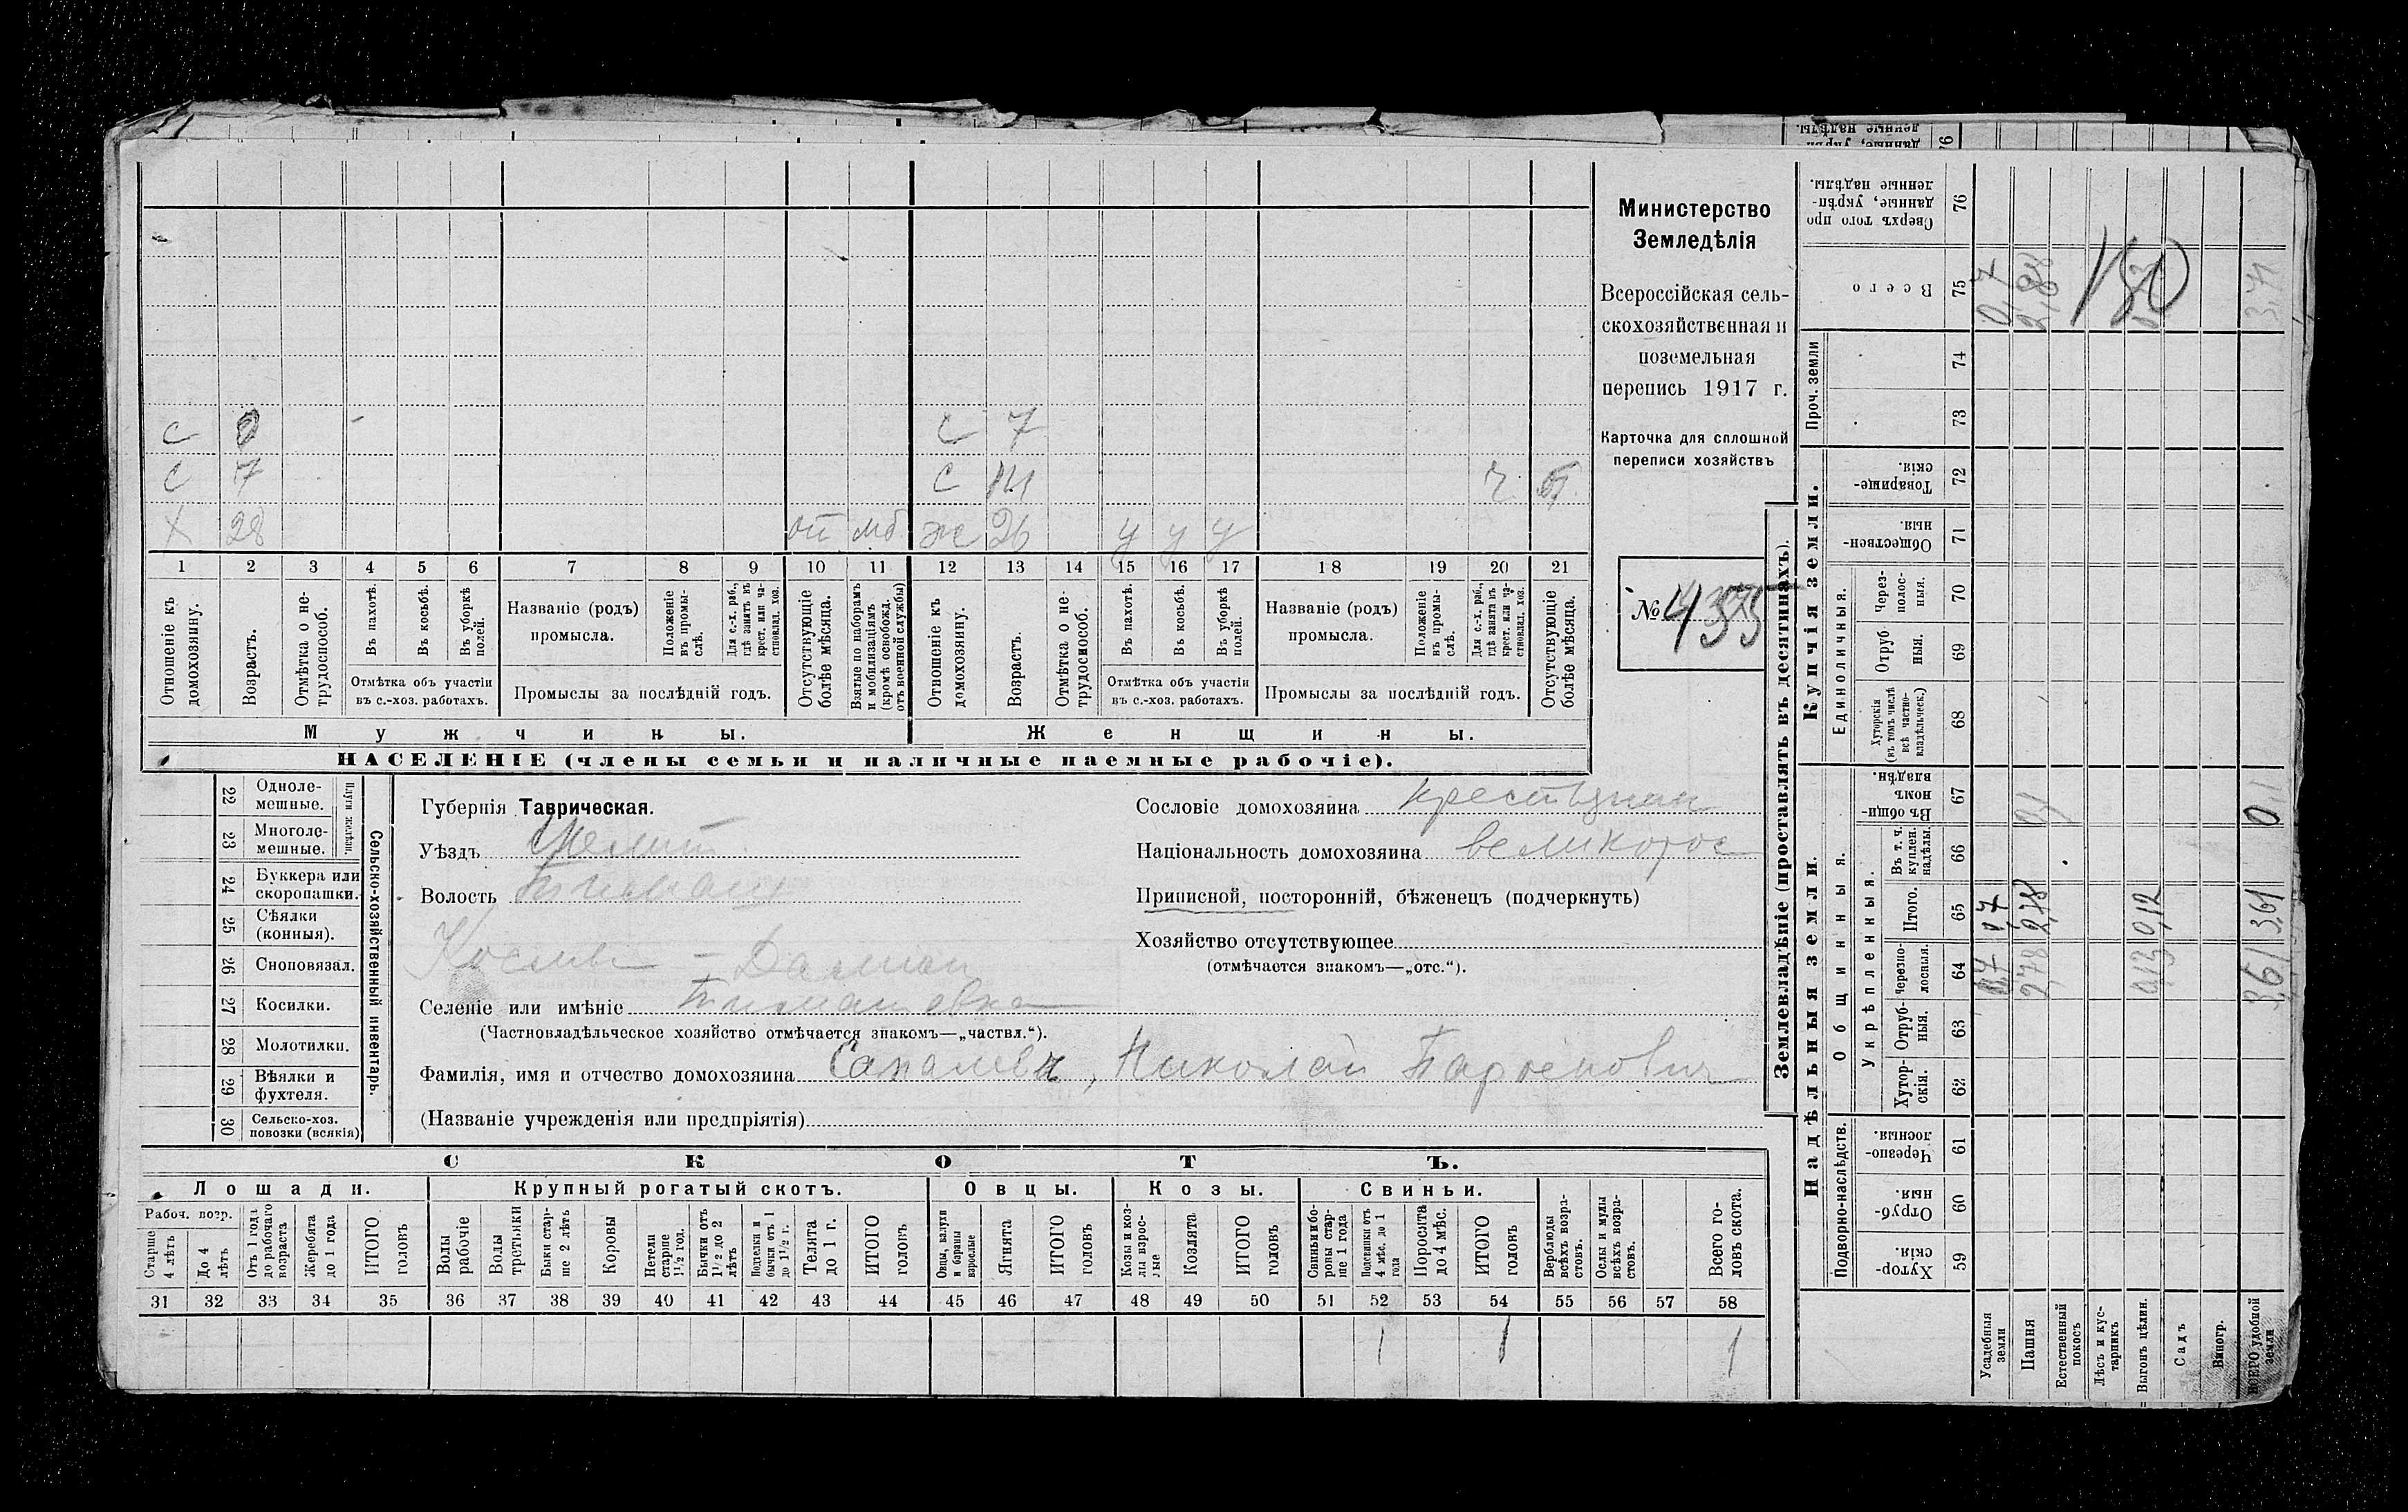 Министерство
Земледѣлія
Всероссійская сель-
скохозяйственная и
поземельная
перепись 1917 г.
Карточка для сплошной
переписи хозяйствъ
№ 4355
С 0 С 7
С 7 С 14 ч
Х 28 от мб ж 26 у у у
1 2 3 4 5 6 7 8 9 10 11 12 13 14 15 16 17 18 19 20 21
Отношеніе къ домохозяину.
Возрастъ.
Отмѣтка о не-трудоспособ.
Въ пахотѣ.
Въ косьбѣ.
Въ уборкѣ полей.
Отмѣтка объ участіи
въ с.-хоз. работахъ.
Названіе (родъ)
промысла.
Положеніе въ промы-слѣ.
Для с.-х. раб., гдѣ занятъ въ крест. или ча-стновлад. хоз.
Промыслы за послѣдній годъ.
Отсутствующіе болѣе мѣсяца.
Взятые по наборамъ и мобилизаціямъ (кромѣ освобожд. отъ военной службы)
Отношеніе къ домохозяину.
Возрастъ.
Отмѣтка о не-трудоспособ.
Въ пахотѣ.
Въ косьбѣ.
Въ уборкѣ полей.
Отмѣтка объ участіи
въ с.-хоз. работахъ.
Названіе (родъ)
промысла.
Положеніе въ промы-слѣ.
Для с.-х. раб., гдѣ занята въ крест. или ча-стновлад. хоз.
Промыслы за послѣдній годъ.
Отсутствующіе болѣе мѣсяца.
Мужчины.
Женщины.
НАСЕЛЕНІЕ (члены семьи и наличные наемные рабочіе).
22 Одноле-мешные.
23 Многоле-мешные.
Плуги желѣзн.
24 Буккера или скоропашки.
25 Сѣялки (конныя).
26 Сноповязал.
27 Косилки.
28 Молотилки.
29 Вѣялки и фухтеля.
30 Сельско-хоз. повозки (всякія)
Сельско-хозяйственный инвентарь.
Губернія Таврическая.
Уѣздъ Мелит.
Волость Тимаш
Селеніе или имѣніе Тимашевка
(Частновладѣльческое хозяйство отмѣчается знакомъ—„частвл.“).
Фамилія, имя и отчество домохозяина , Николай Парѳенович
(Названіе учрежденія или предпріятія)
Сословіе домохозяина крестьянин
Національность домохозяина великорос
Приписной, посторонній, бѣженецъ (подчеркнуть)
Хозяйство отсутствующее
(отмѣчается знакомъ—„отс.“).
СКОТЪ.
Лошади. Крупный рогатый скотъ. Овцы. Козы. Свиньи.
Рабоч. возр.
Старше 4 лѣтъ
До 4 лѣтъ
Отъ 1 года до рабочаго возраста
Жеребята до 1 года
ИТОГО головъ
Волы рабочіе
Волы третьяки
Быки стар-ше 2 лѣтъ
Коровы
Нетели старше 1½ год.
Бычки отъ 1½ до 2 лѣтъ
Подтелки и бычки отъ 1 до 1½ г.
Телята до 1 г.
ИТОГО головъ
Овцы, валухи и бараны взрослые
Ягнята
ИТОГО головъ
Козы и коз-лы взрос-лые
Козлята
ИТОГО головъ
Свиньи и бо-ровы стар-ше 1 года
Подсвинки отъ 4 мѣс. до 1 года
Поросята до 4 мѣс.
ИТОГО головъ
Верблюды всѣхъ возра-стовъ.
Ослы и мулы всѣхъ возра-стовъ.
Всего го-ловъ скота.
31 32 33 34 35 36 37 38 39 40 41 42 43 44 45 46 47 48 49 50 51 52 53 54 55 56 57 58
1 1 1
Землевладѣніе (проставлять въ десятинахъ).
Купчія земли.
Надѣльныя земли.
Сверхъ того про данные, укрѣп-ленные надѣлы. 76
Всего 75
Проч. земли 74 73
Товарище-скія. 72
Обществен-ныя. 71
Единоличныя.
Через-полос-ныя. 70
Отруб-ныя. 69
Хуторскія (въ томъ числѣ всѣ частно-владѣльческ.) 68
Общинныя.
Въ общи-номъ владѣн. 67
Укрѣпленныя.
Въ т. ч. куплен. надѣлы. 66
Итого. 65
Черезпо-лосныя. 64
Отруб-ныя. 63
Хутор-скія. 62
Подворно-наслѣдств.
Черезпо-лосныя. 61
Отруб-ныя. 60
Хутор-скія. 59
Усадебныя земли
Пашня
Естественный покосъ
Лѣсъ и кус-тарникъ
Выгонъ цѣлин.
Садъ
Виногр.
ВСЕГО удобной земли
0,7 2,88 3,71
130
0,1 0,1
0,7 2,78 0,12 3,61
0,7 2,78 0,13 3,61